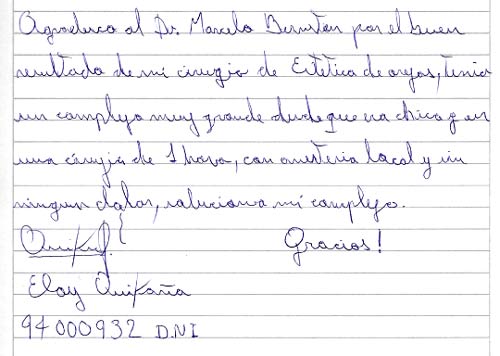 Agradezco al Dr. Marcelo Bernstein por el buen
resultado de mi cirugia de Estética de orejas, tenia
un complejo muy grande desde que era chico y en
una cirujia de 1 hora, con anestesia local y sin
ningun dolor, soluciono mi complejo.
Gracias!
Eloy Quikaña
94000932 D.N.I